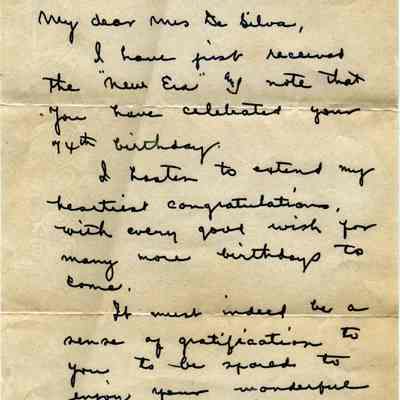 My dear Mrs De Silva,
I have just received
the "New Era" & note that
you have celebrated your
74th birthday.
I hasten to extend my
heartiest congratulations,
with every good wish for
many more birthdays to
come.
It must indeed be a
sense of gratification to
you to be spared to
enjoy your wonderful